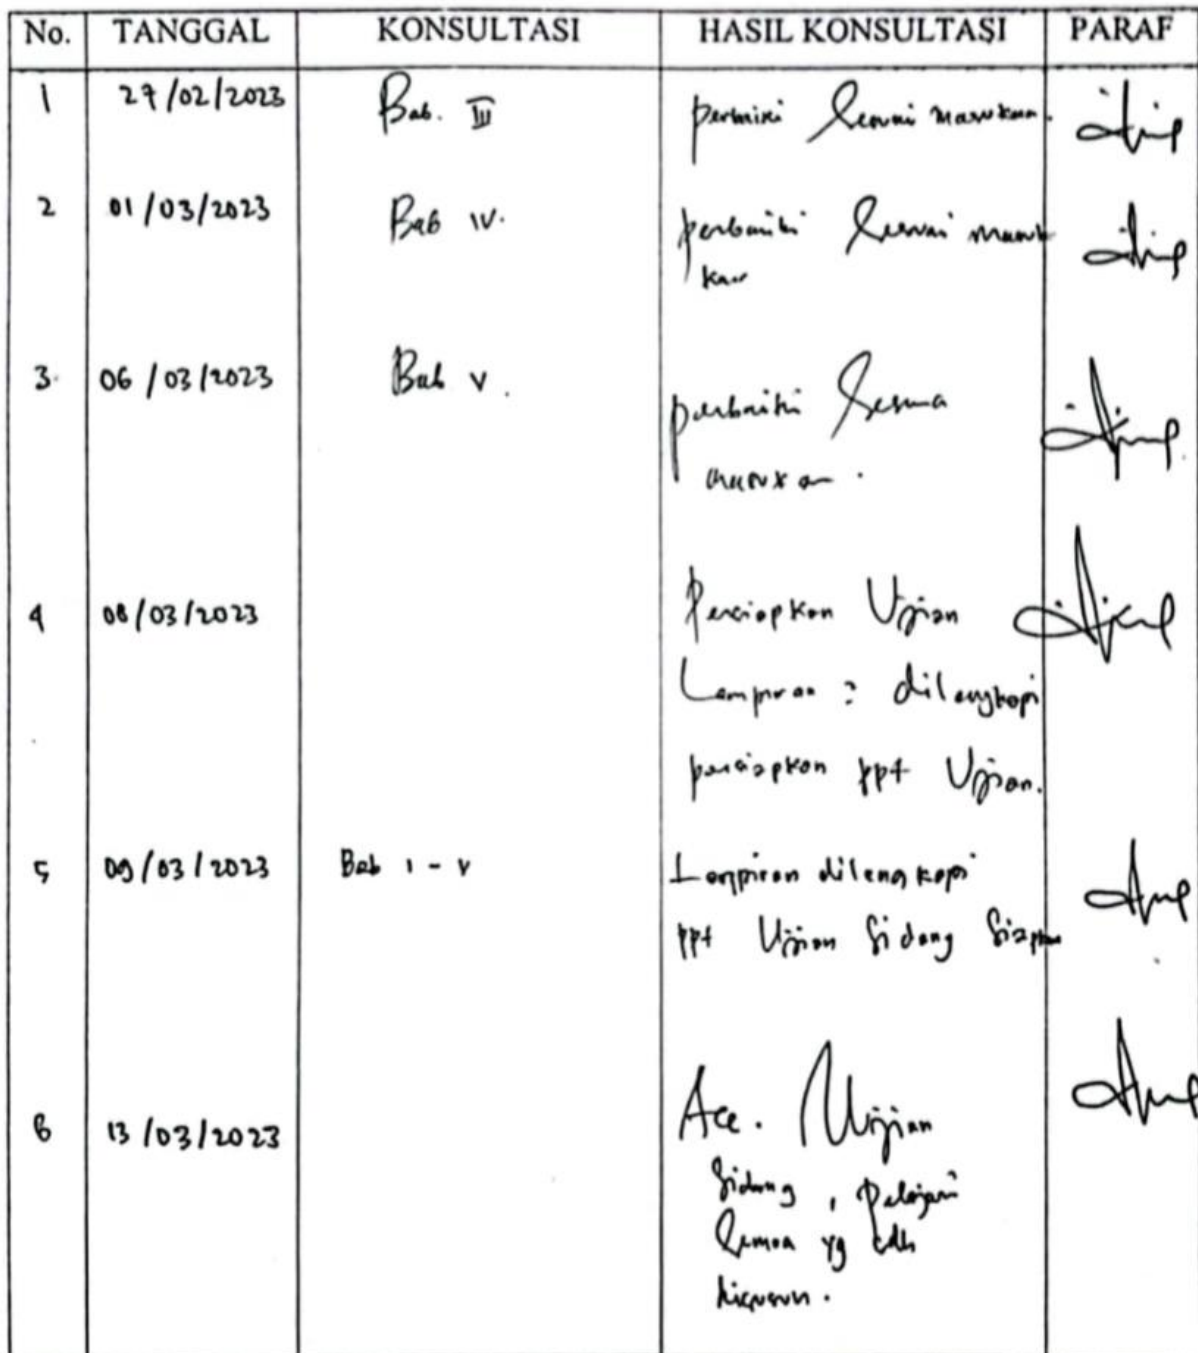 No. TANGGAL KONSULTASI HASIL KONSULTASI PARAF
1 27/02/2023 Bab. III perbaiki sesuai masukan.
2 01/03/2023 Bab IV. perbaiki sesuai masuk
kan
3. 06/03/2023 Bab V. perbaiki semua
masukan.
4 08/03/2023 Persiapkan Ujian
Lampiran : dilengkapi
persiapkan ppt Ujian.
5 09/03/2023 Bab I - V Lampiran dilengkapi
ppt Ujian Sidang Siapkan
6 13/03/2023 Acc. Ujian
Sidang, pelajari
semua yg